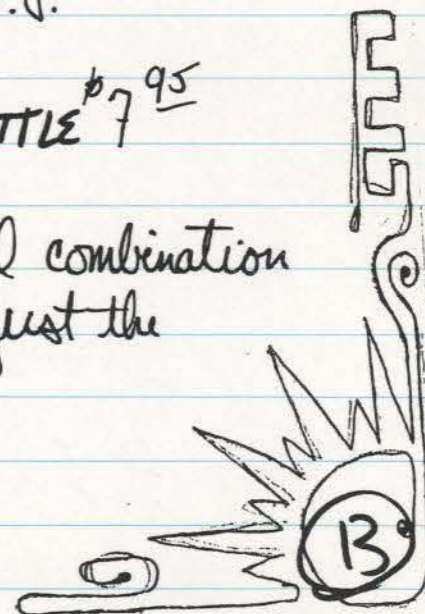 TTLE $7 95
combination
just the
13